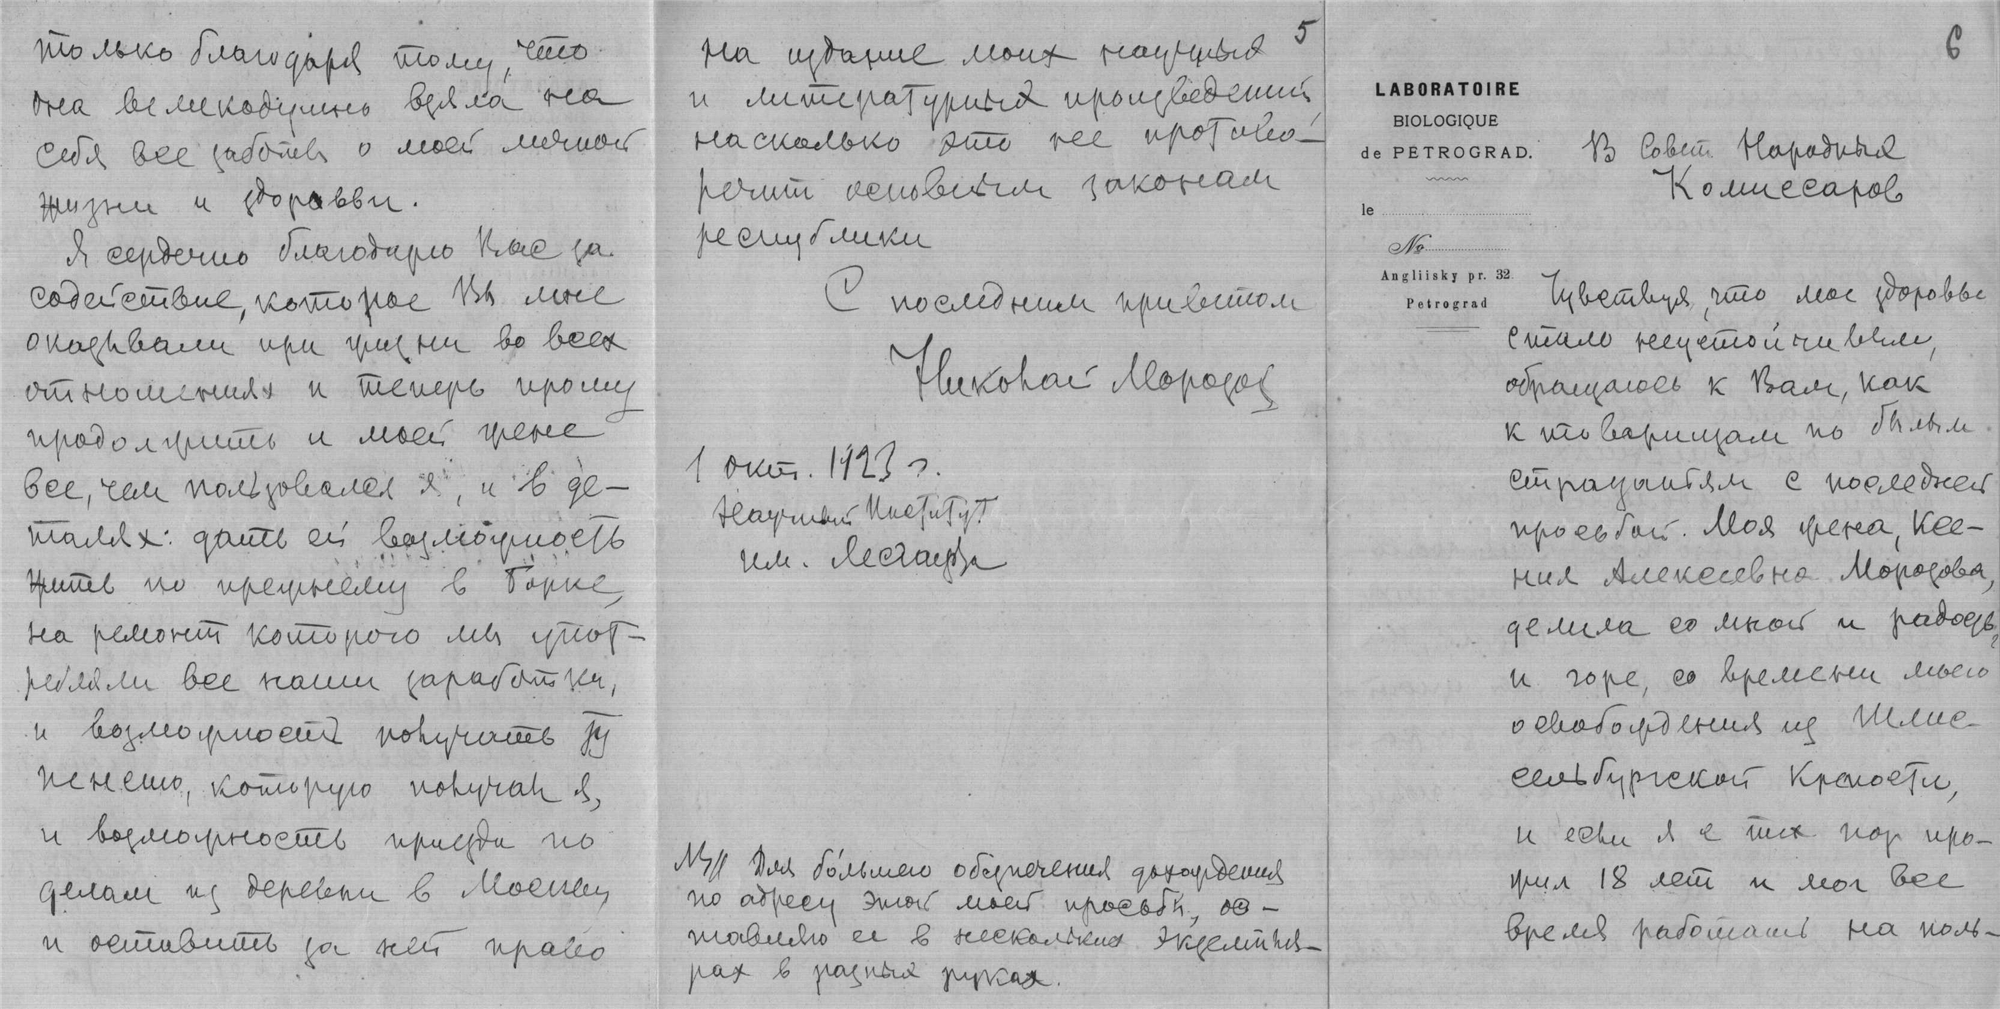 только благодаря тому, что
она великодушно взяла на
себя все заботы о моей личной
жизни и здоровьи.
Я сердечно благодарю Вас за
содействие, которое Вы мне
оказывали при жизни во всех
отношениях и теперь прошу
продолжить и моей жене
все, чем пользовался я, и в де-
талях: дать ей возможность
жить по прежнему в Борке,
на ремонт которого мы упот-
ребляли все наши заработки,
и возможность получать ту
пенсию, которую получал я,
и возможность приезда по
делам из деревни в Москву
и оставить за ней право
5
на издание моих научных
и литературных произведений,
насколько это не противо-
речит основным законам
республики
С последним приветом
Николай Морозов
1 окт. 1923 г.
Научный Институт
им. Лесгафта
Для бóльшего обезпечения дохождения
по адресу этой моей просьбы, ос-
тавляю ее в нескольких экземпля-
рах в разных руках.
6
LABORATOIRE
BIOLOGIQUE
de PETROGRAD.
le
№
Angliisky pr. 32.
Petrograd
В Совет Народных
Комиссаров
Чувствуя, что мое здоровье
стало неустойчивым,
обращаюсь к Вам, как
к товарищам по былым
страданиям с последней
просьбой. Моя жена, Ксе-
ния Алексеевна Морозова,
делила со мной и радость,
и горе, со времени моего
освобождения из Шлис-
сельбургской Крепости,
и если я с тех пор про-
жил 18 лет и мог все
время работать на поль-